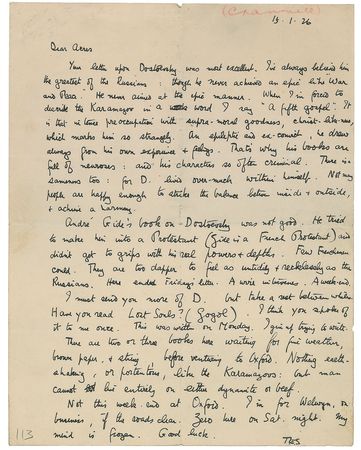 (Cranwell)
15.1.26
Dear Acres
Your letter upon Dostoevsky was most excellent. I've always believed him
the greatest of the Russians: though he never achieved an epic like War
and Peace. He never aimed at the epic manner. When I'm forced to
describe the Karamazov in a word I say "A fifth gospel". It
is that intense preoccupation with supra-moral goodness, christ-like-ness,
which marks him so strangly. An epileptic and ex-convict, he draws
always from his own experience & feelings. That's why his books are
full of neuroses: and his characters so often criminal. There is a
sameness too: for D. lived over-much within himself. Not many
people are happy enough to strike the balance between inside & outside,
& achieve a harmony.
André Gide's book on Dostoevsky was not good. He tried
to make him into a Protestant (Gide is a French Protestant) and
didn't get to grips with his real powers & depths. Few Frenchmen
could. They are too dapper to feel as untidily & recklessly as the
Russians. Here ended Friday's letter. A wire intervenes. A week-end.
I must send you more of D. but take a rest between while.
Have you read Lost Souls? (Gogol). I think you spoke of
it to me once. This was written on Monday. I give up trying to write.
There are two or three books here waiting for fine weather,
brown paper, & string before venturing to Oxford. Nothing earth-
shaking, or portentous, like the Karamazovs: but man
cannot live entirely on either dynamite or beef.
Not this week-end at Oxford. I'm for Welwyn, on
business, if the roads clear. Zero here on Sat. night. My
mind is frozen. Good luck.
TES
113